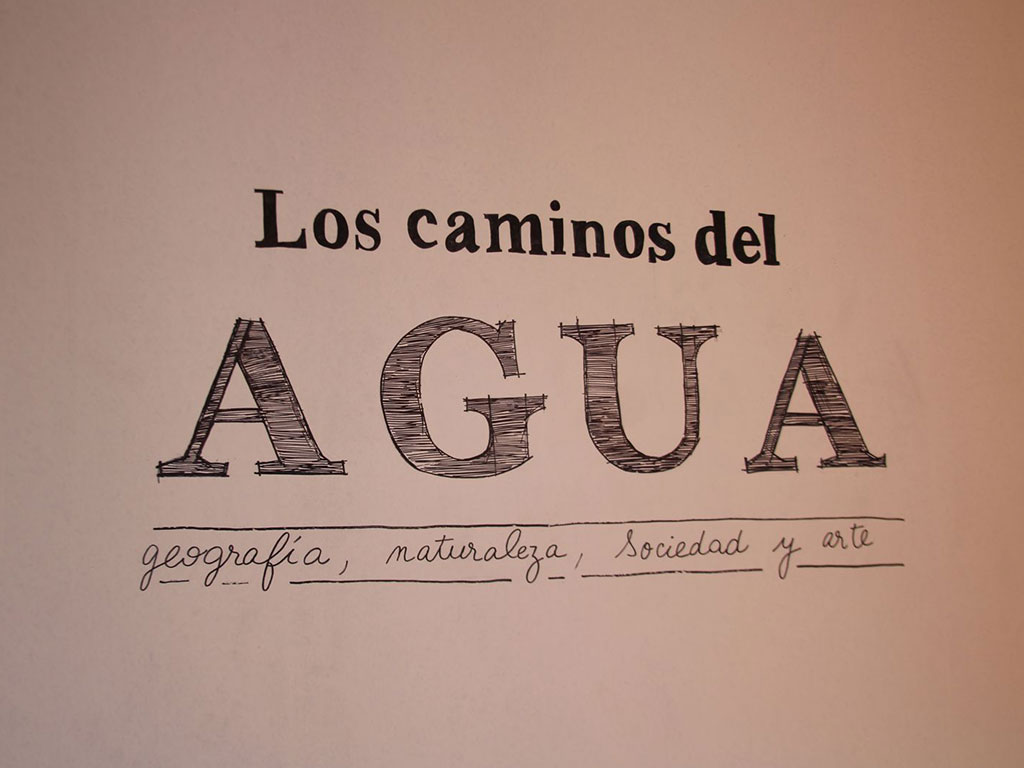 Los caminos del
AGUA
geografía, naturaleza, sociedad y arte